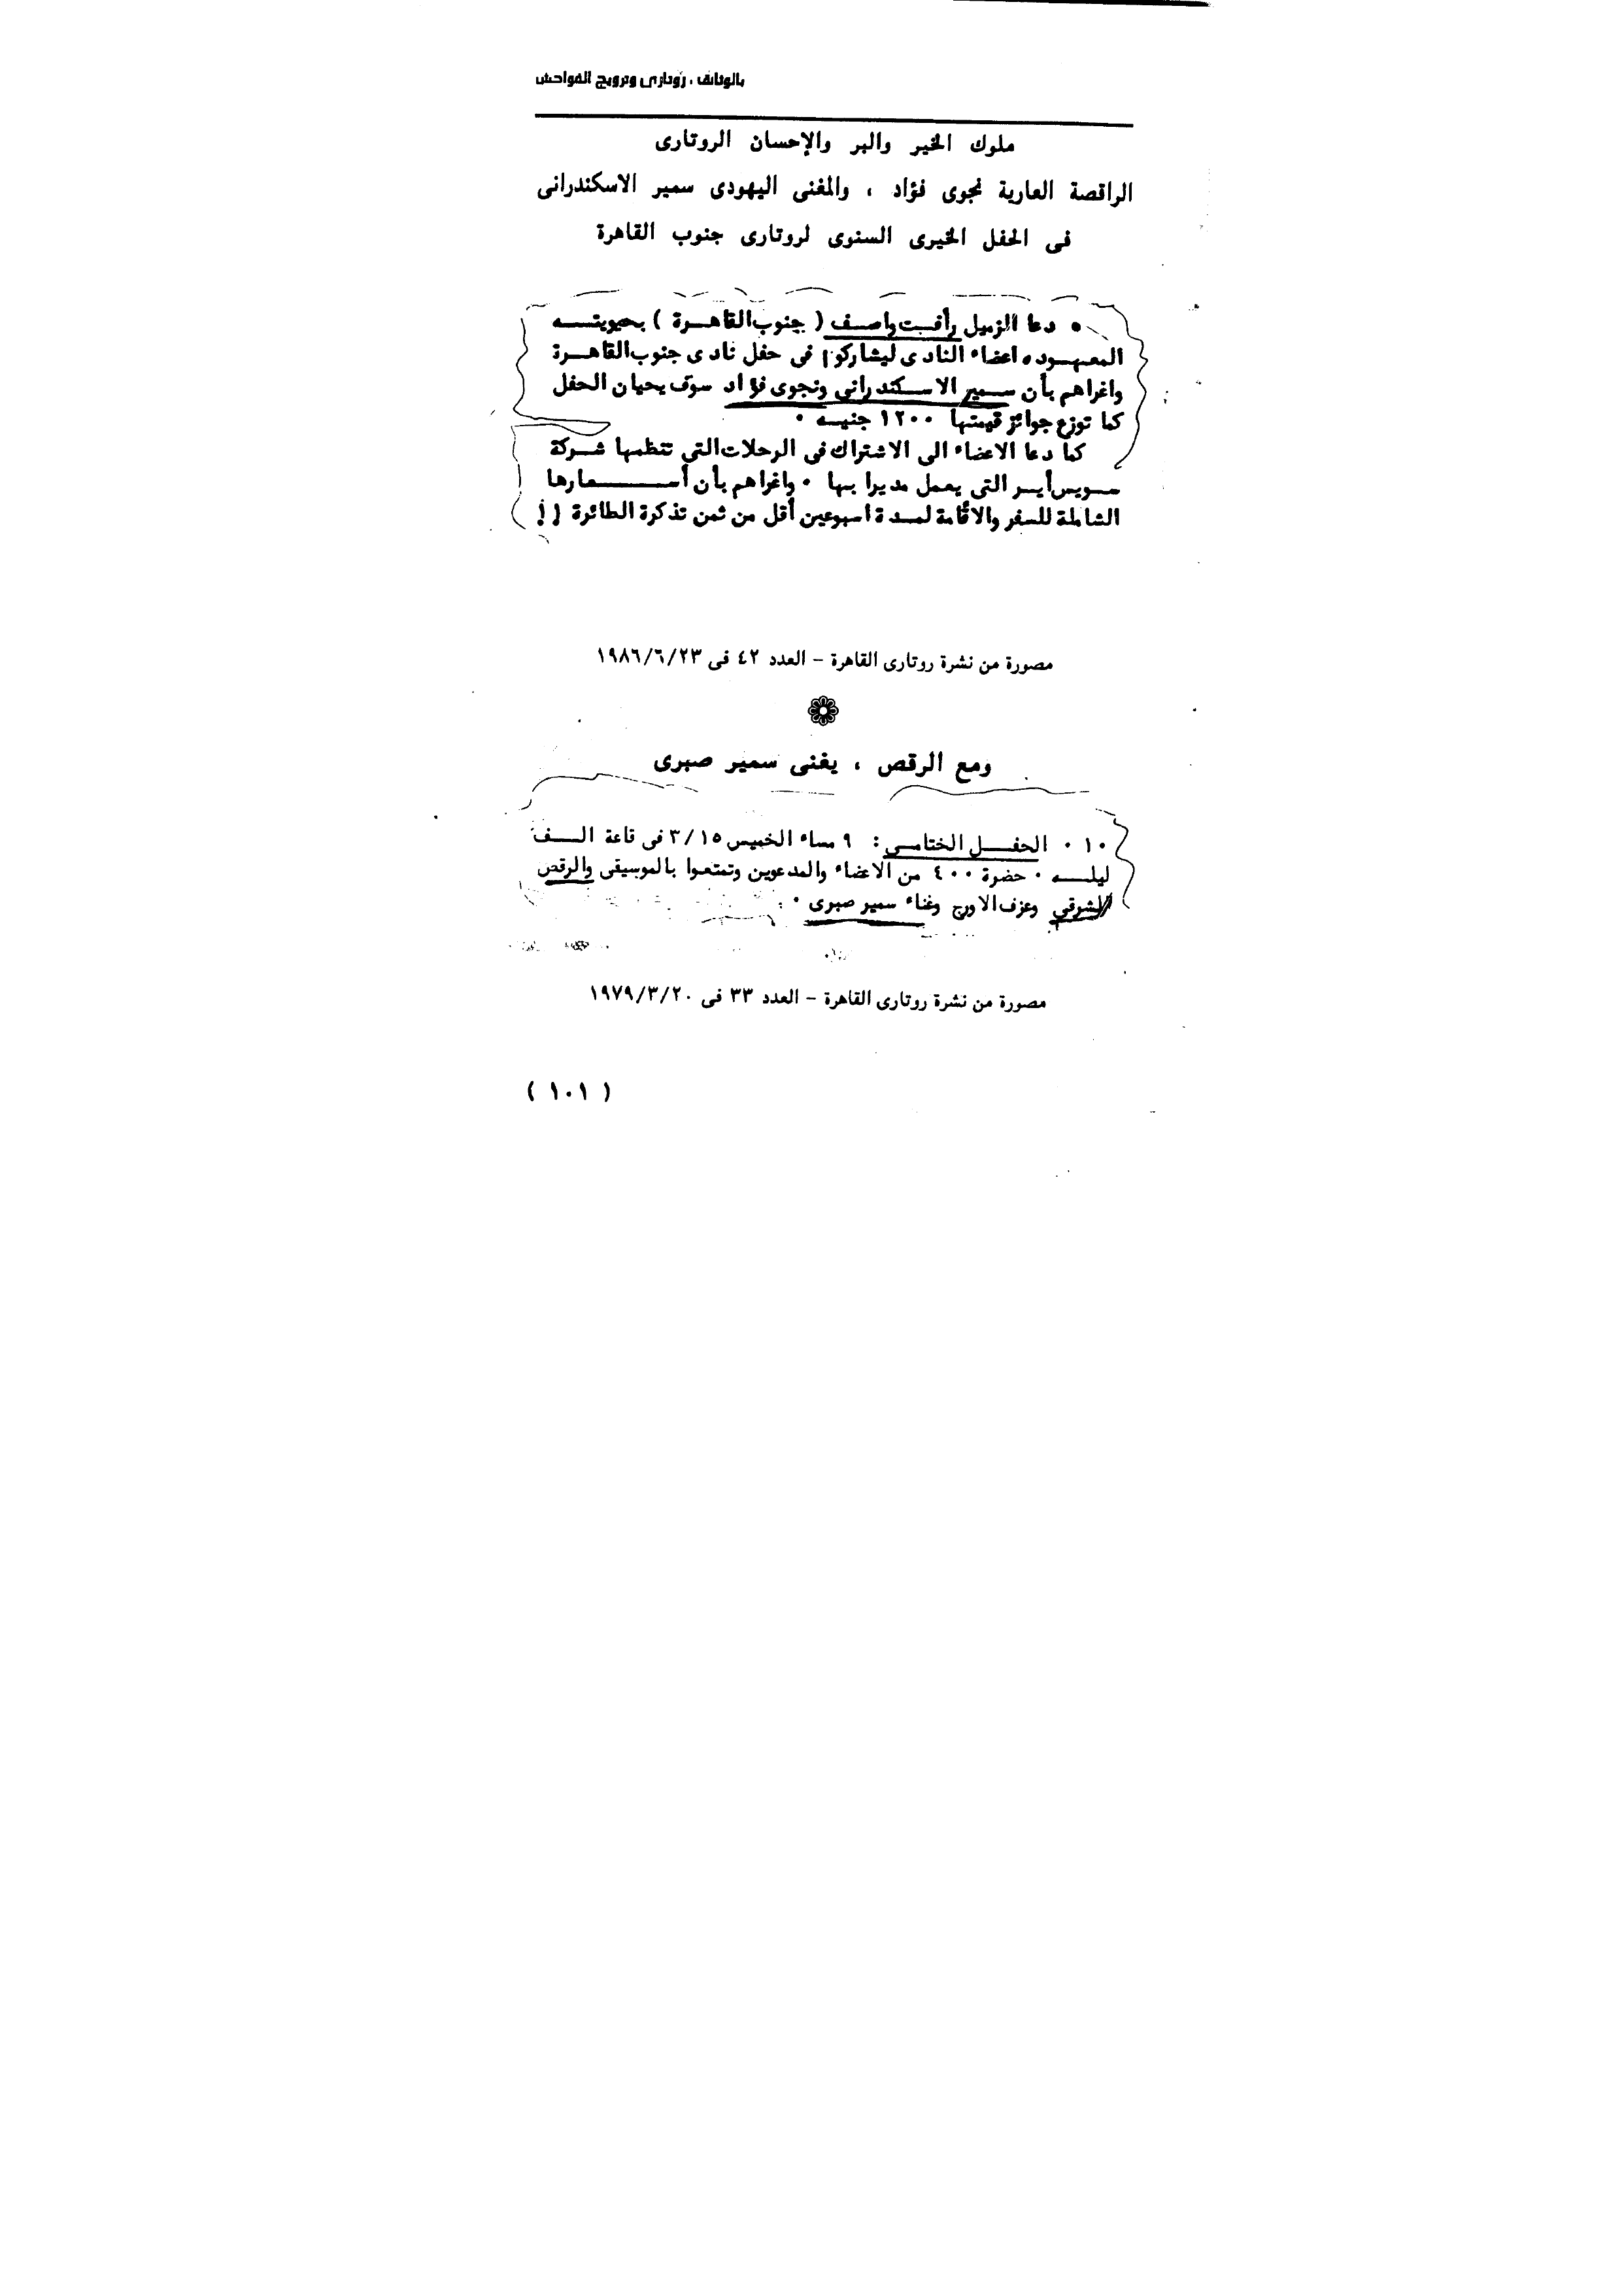 بالوثائق ، روتارى وترويج الفواحش
ملوك الخير والبر والإحسان الروتارى
الراقصة العارية نجوى فؤاد ، والمغنى اليهودى سمير الاسكندرانى
فى الحفل الخيرى السنوى لروتارى جنوب القاهرة
• دعا الزميل رأفت واصف ( جنوب القاهرة ) بحيويته
المعهوده اعضاء النادى ليشاركوا فى حفل نادى جنوب القاهرة
واغراهم بأن سمير الاسكندرانى ونجوى فؤاد سوف يحيان الحفل
كما توزع جوائز قيمتها ١٢٠٠ جنيه ٠
كما دعا الاعضاء الى الاشتراك فى الرحلات التى تنظمها شركة
سويس أير التى يعمل مديرا بها ٠ واغراهم بأن أسعارها
الشاملة للسفر والاقامة لمدة اسبوعين أقل من ثمن تذكرة الطائرة !!
مصورة من نشرة روتارى القاهرة – العدد ٤٢ فى ١٩٨٦/٦/٢٣
ومع الرقص ، يغنى سمير صبرى
١٠ ٠ الحفل الختامى : ٩ مساء الخميس ٣/١٥ فى قاعة الف
ليله ٠ حضرة ٤٠٠ من الاعضاء والمدعوين وتمتعوا بالموسيقى والرقص
الشرقى وعزف الاورج وغناء سمير صبرى ٠
مصورة من نشرة روتارى القاهرة – العدد ٣٣ فى ١٩٧٩/٣/٢٠
( ١٠١ )